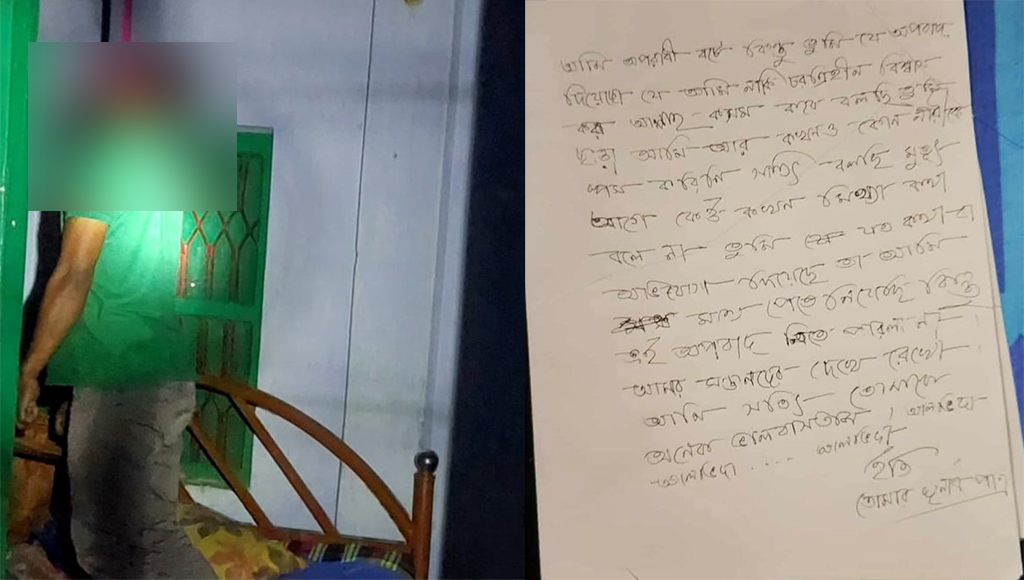 আমি অপরাধী বটে কিন্তু তুমি যে অপবাদ
দিয়েছো যে আমি নাকি চরিত্রহীন বিশ্বাস
কর আল্লাহ কসম করে বলছি তুমি
ছাড়া আমি আর কখনও কোন নারীকে
স্পর্স করিনি সত্যি বলছি মৃত্যু
আগে কেউ কখন মিথ্যা কথা
বলে না তুমি যত কথা বা
অভিযোগ দিয়েছে তা আমি
মাথা পেতে নিয়েছি কিন্তু
এই অপবাদ নিতে পারলাম না
আমার সন্তানদের দেখে রেখো
আমি সত্যি তোমাকে
অনেক ভালবাসতাম। আলবিদা
আলবিদা .... আলবিদা
ইতি
তোমার ঘৃনার পাত্র